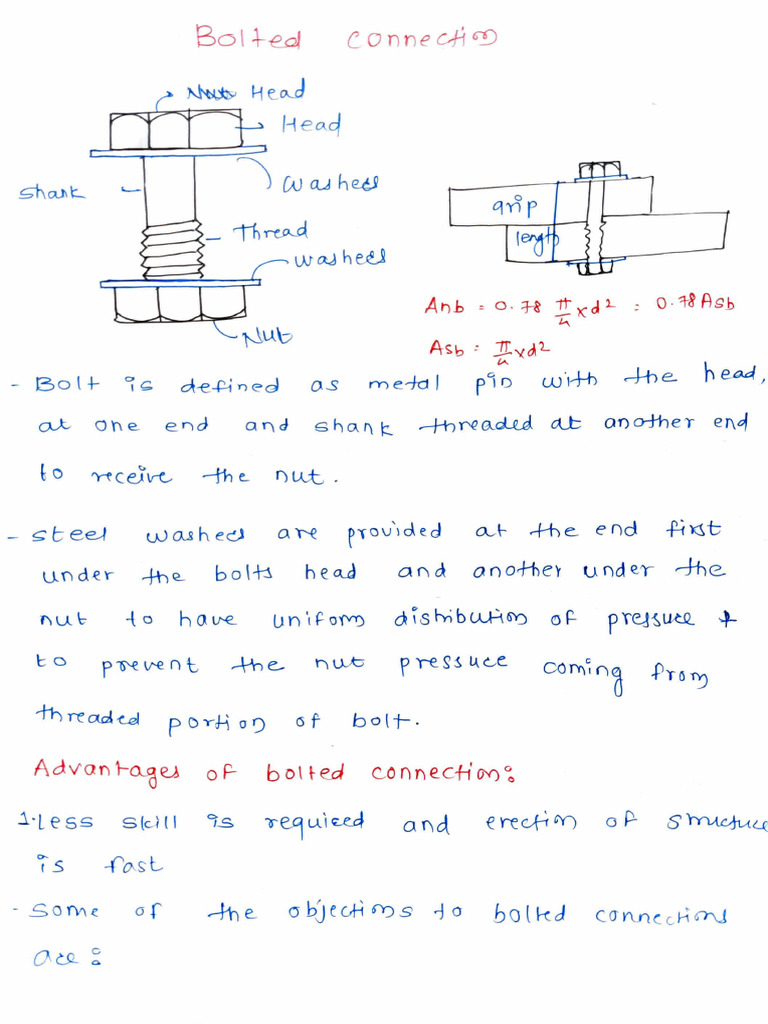 Bolted connection
Head
Head
Washers
Shank
Thread
Washers
Nut
grip
length
Anb = 0.78 π/4 x d² = 0.78 Asb
Asb = π/4 x d²
- Bolt is defined as metal pin with the head,
at one end and shank threaded at another end
to receive the nut.
- Steel washers are provided at the end first
under the bolts head and another under the
nut to have uniform distribution of pressure &
to prevent the nut pressure coming from
threaded portion of bolt.
Advantages of bolted connection:
1. Less skill is required and erection of structure
is fast
- Some of the objections to bolted connections
are: